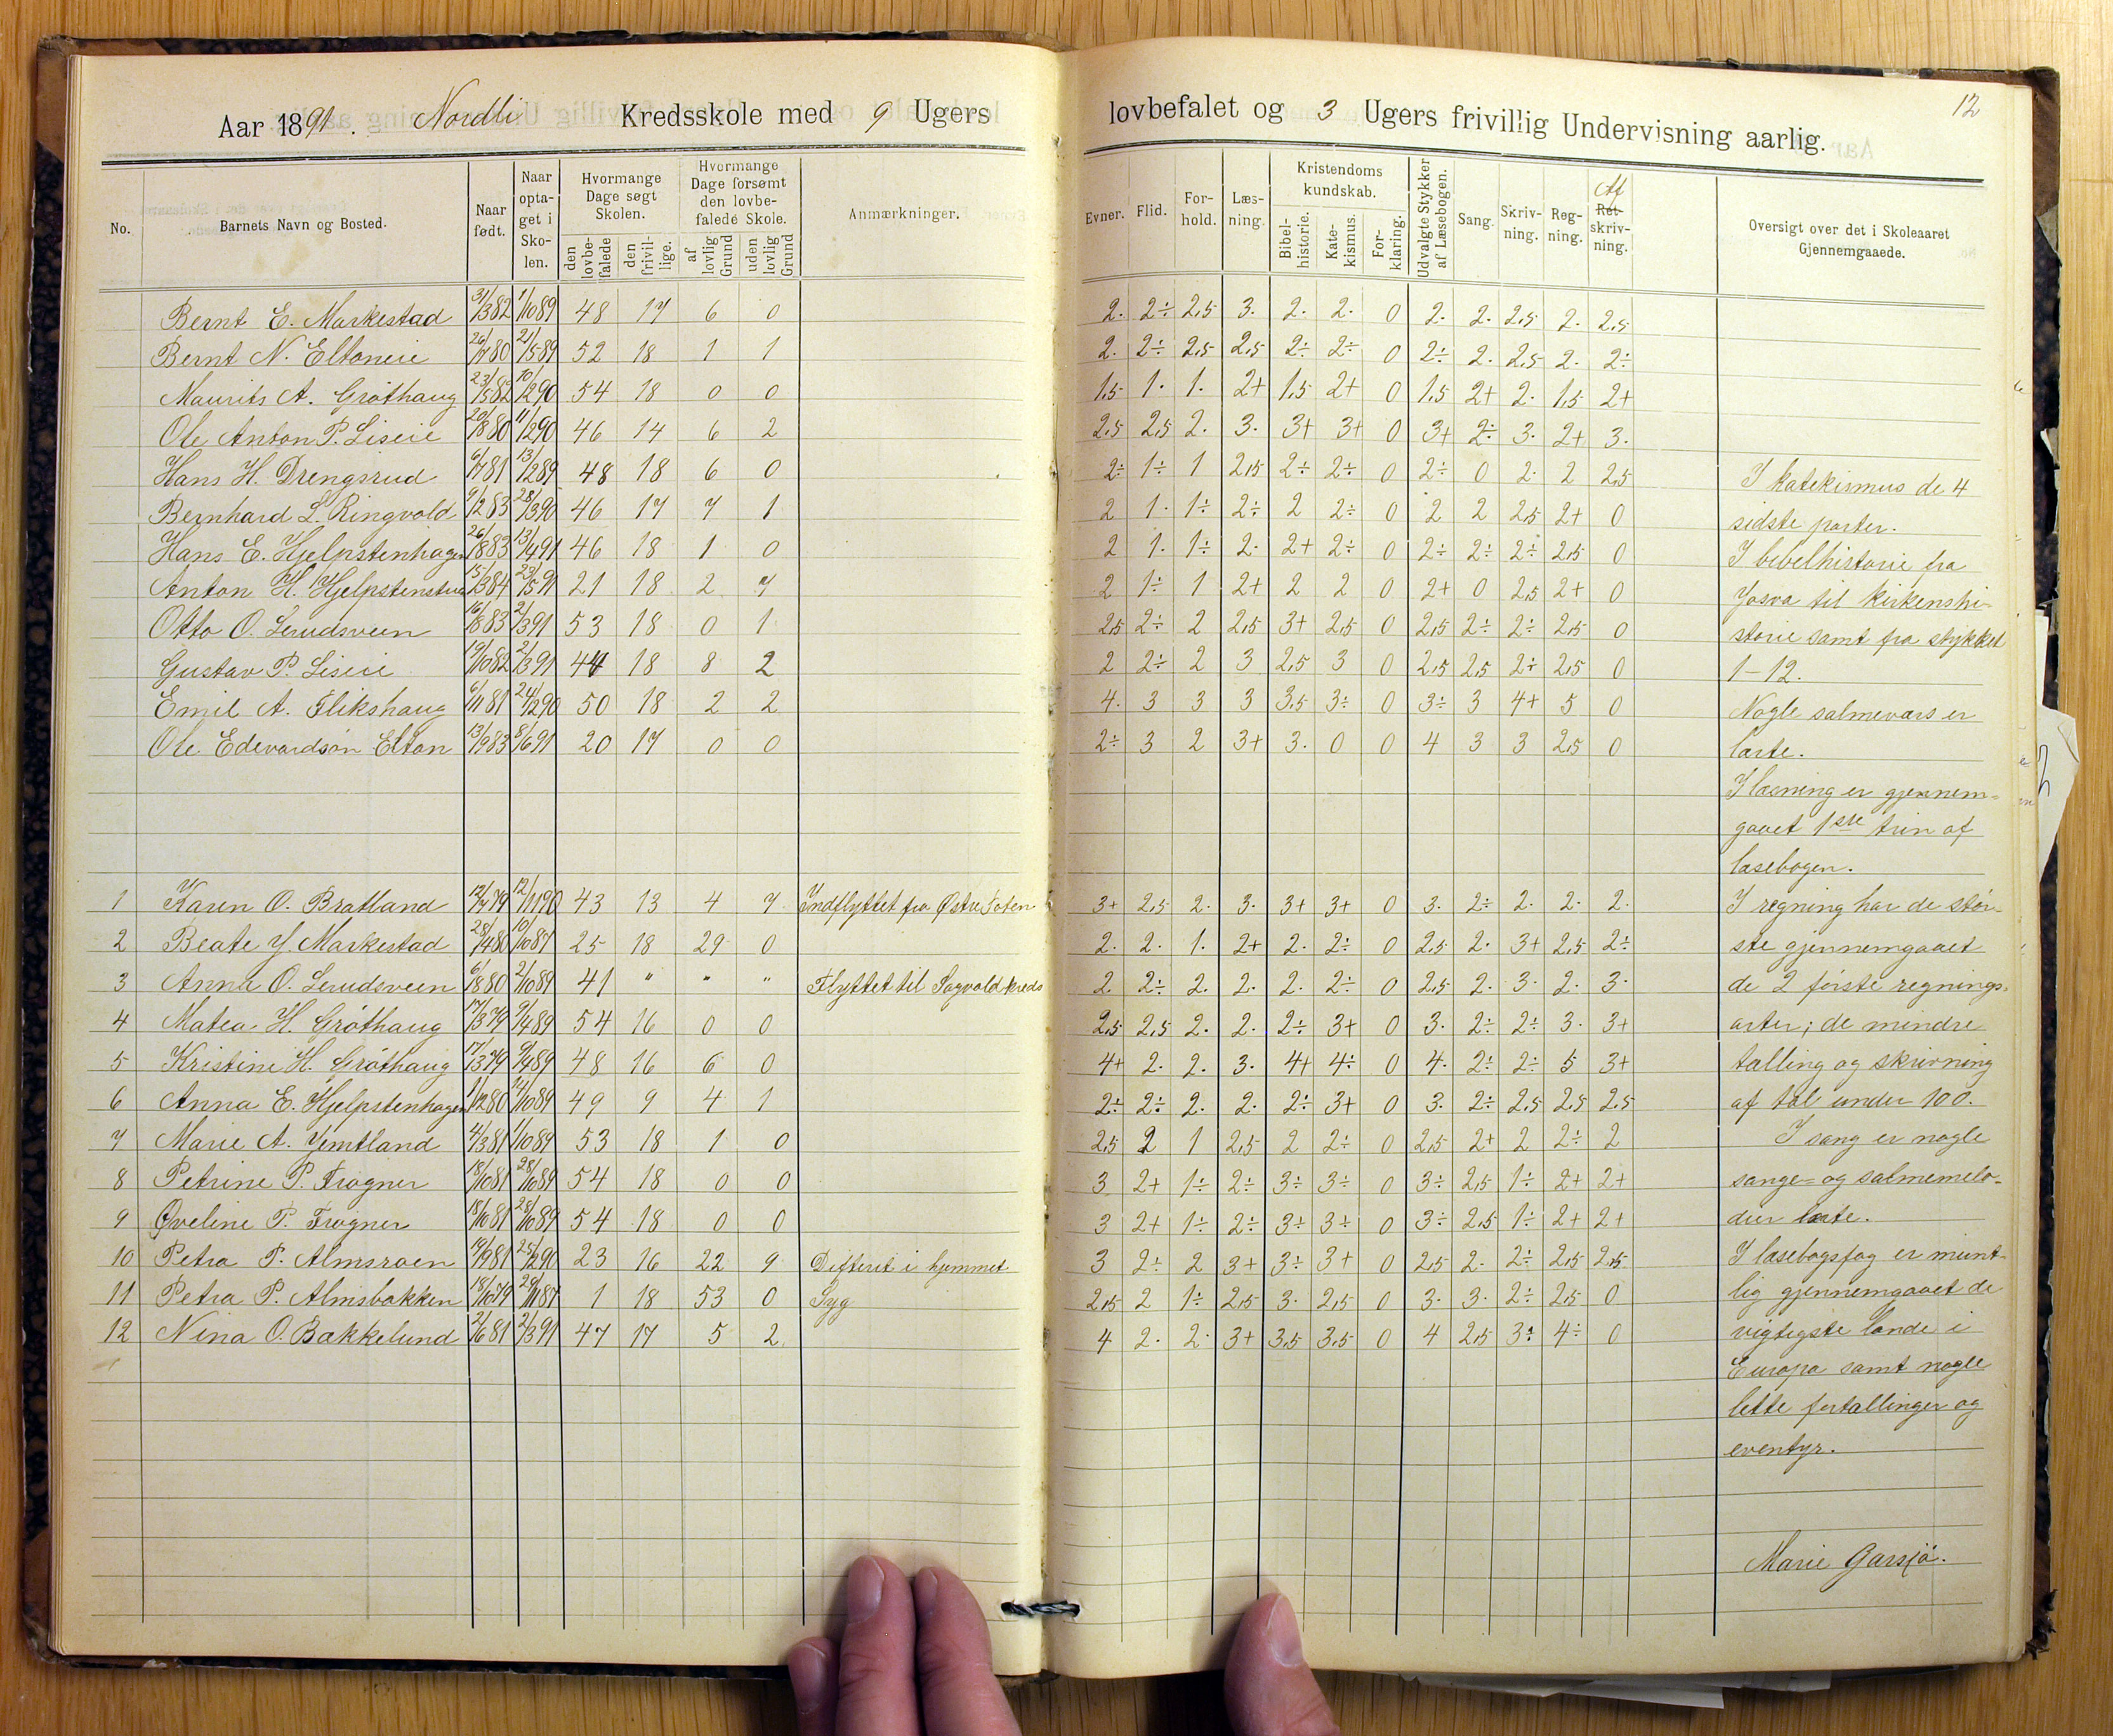 Aar 1891. Nordli Kredsskole med 9 Ugers lovbefalet og 3 Ugers frivillig Undervisning aarlig.
12
No. Barnets Navn og Bosted. Naar født. Naar optaget i Skolen. Hvormange Dage søgt Skolen. den lovbefalede den frivillige. Hvormange Dage forsømt den lovbefalede Skole. af lovlig Grund uden lovlig Grund Anmærkninger. Evner. Flid. Forhold. Læsning. Kristendomskundskab. Bibelhistorie. Katekismus. Forklaring. Udvalgte Stykker af Læsebogen. Sang. Skrivning. Regning. Af Retskrivning. Oversigt over det i Skoleaaret Gjennemgaaede.
Bernt E. Markestad 31/3 82 1/10 89 48 17 6 0 2. 2÷ 2,5 3. 2. 2. 0 2. 2. 2,5 2. 2,5
Bernt N. Eltoneie 26/7 80 21/5 89 52 18 1 1 2. 2÷ 2,5 2,5 2÷ 2÷ 0 2÷ 2. 2,5 2. 2÷
Maurits A. Gröthaug 23/5 82 10/2 90 54 18 0 0 1,5 1. 1. 2+ 1,5 2+ 0 1,5 2+ 2. 1,5 2+
Ole Anton P. Liseie 20/8 80 11/2 90 46 14 6 2 2,5 2,5 2. 3. 3+ 3+ 0 3+ 2÷ 3. 2+ 3.
Hans H. Drengsrud 6/7 81 13/2 89 48 18 6 0 2÷ 1÷ 1 2,5 2÷ 2÷ 0 2÷ 0 2. 2 2,5 I katekismus de 4
Bernhard L. Ringvold 9/2 83 28/3 90 46 17 7 1 2 1. 1÷ 2÷ 2 2÷ 0 2 2 2,5 2+ 0 sidste parter.
Hans E. Hjelpstenhagen 26/8 83 13/4 91 46 18 1 0 2 1. 1÷ 2. 2+ 2÷ 0 2÷ 2÷ 2÷ 2,5 0 I bebelhistorie fra
Anton H. Hjelpstenstuen 15/3 84 23/5 91 21 18 2 7 2 1÷ 1 2+ 2 2 0 2+ 0 2,5 2+ 0 Josva til kirkenshi-
Otto O. Lerudsveen 16/8 83 2/3 91 53 18 0 1 2,5 2÷ 2 2,5 3+ 2,5 0 2,5 2÷ 2÷ 2,5 0 storie samt fra stykket
Gustav P. Liseie 19/10 82 2/3 91 44 18 8 2 2 2÷ 2 3 2,5 3 0 2,5 2,5 2÷ 2,5 0 1-12.
Emil A. Flikshaug 6/11 81 24/2 90 50 18 2 2 4. 3 3 3 3,5 3÷ 0 3÷ 3 4+ 5 0 Nogle salmeværs er
Ole Edevardsön Elton 13/9 83 8/6 91 20 17 0 0 2÷ 3 2 3+ 3. 0 0 4 3 3 2,5 0 lærte.
I læsning er gjennem=
gaaet 1ste trin af
læsebogen.
1 Karen O. Bratland 12/7 79 12/11 90 43 13 4 7 Indflyttet fra Østre Toten 3+ 2,5 2. 3. 3+ 3+ 0 3. 2÷ 2. 2. 2. I regning har de stør-
2 Beate J. Markestad 28/4 80 10/10 87 25 18 29 0 2. 2. 1. 2+ 2. 2÷ 0 2,5 2. 3+ 2,5 2÷ ste gjennemgaaet
3 Anna O. Lerudsveen 6/8 80 2/10 89 41 " " " Flyttet til Sogvold kreds 2. 2÷ 2. 2. 2. 2÷ 0 2,5 2. 3. 2. 3. de 2 første regnings=
4 Matea H. Gröthaug 17/3 79 9/4 89 54 16 0 0 2,5 2,5 2. 2. 2÷ 3+ 0 3. 2÷ 2÷ 3. 3+ arter; de mindre
5 Kristine H. Gröthaug 17/3 79 9/4 89 48 16 6 0 4+ 2. 2. 3. 4+ 4÷ 0 4. 2÷ 2÷ 5 3+ tælling og skrivning
6 Anna E. Hjelpstenhagen 1/2 80 14/10 89 49 9 4 1 2÷ 2÷ 2. 2. 2÷ 3+ 0 3. 2÷ 2,5 2,5 2,5 af tal under 100.
7 Marie A. Jemtland 4/3 81 1/10 89 53 18 1 0 2,5 2 1 2,5 2 2÷ 0 2,5 2+ 2 2÷ 2 I sang er nogle
8 Petrine P. Frogner 18/10 81 28/10 89 54 18 0 0 3 2+ 1÷ 2÷ 3÷ 3÷ 0 3÷ 2,5 1÷ 2+ 2+ sange= og salmemelo-
9 Oveline P. Frogner 18/10 81 28/10 89 54 18 0 0 3 2+ 1÷ 2÷ 3÷ 3÷ 0 3÷ 2,5 1÷ 2+ 2+ dier lærte.
10 Petra P. Almsroen 19/9 81 25/2 90 23 16 22 9 Difterit i hjemmet. 3 2÷ 2 3+ 3÷ 3+ 0 2,5 2. 2÷ 2,5 2,5 I læsebogsfag er munt-
11 Petra P. Almsbakken 18/10 79 28/11 87 1 18 53 0 Syg 2,5 2 1÷ 2,5 3. 2,5 0 3. 3. 2÷ 2,5 0 lig gjennemgaaet de
12 Nina O. Bakkelund 2/6 81 2/3 91 47 17 5 2 4 2. 2. 3+ 3,5 3,5 0 4 2,5 3÷ 4÷ 0 vigtigste lande i
Europa samt nogle
lette fortællinger og
eventyr.
Marie Garsjö.